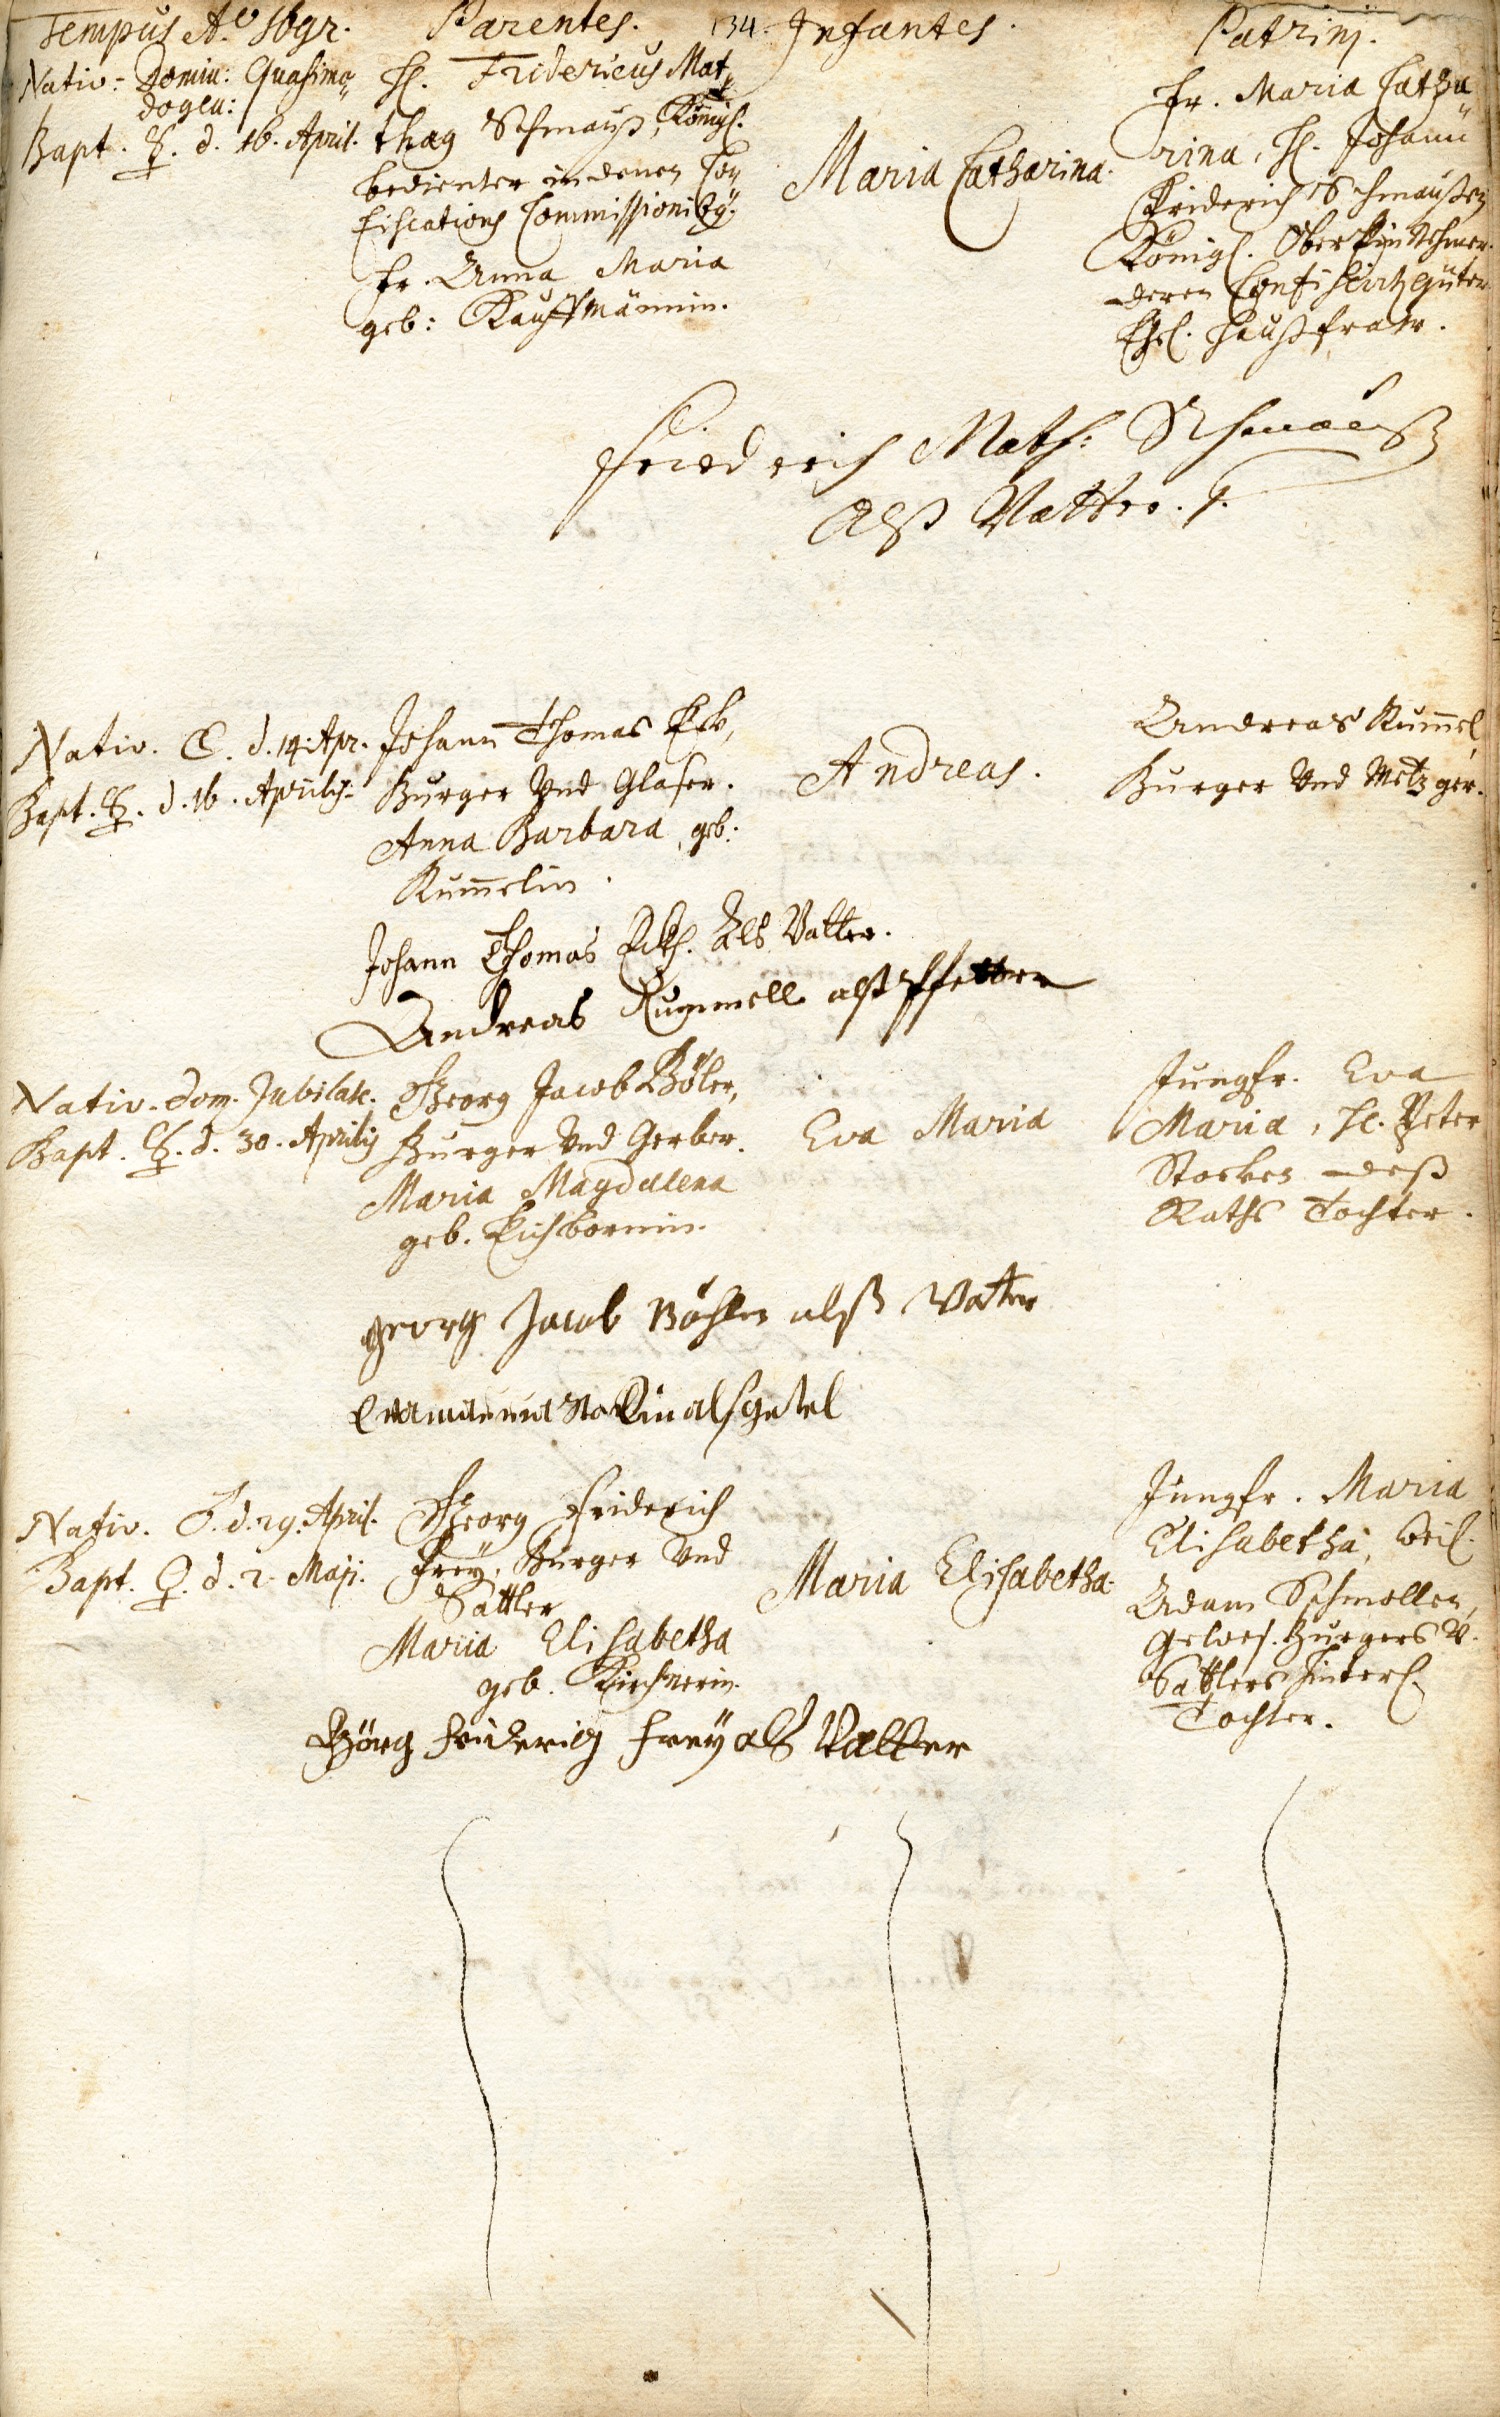 Tempus Ao 1691. Parentes. 134. Infantes. Patrinj.
Nativ: Domin: Quasimo„
dogen:
Bapt. ☿. d. 16. April.
H. Fridericus Mat„
thæg Schmauß, Königl.
bedienter in denen Con„
fiscations Commissionibg.
Fr. Anna Maria
geb: Kauffmännin.
Maria Catharina.
Fr. Maria Catha„
rina, H. Johann
Friderich Schmaußen
Königl. Ober
deren Confiscirten güter
Ehel. Haußfraw.
Friedrich Math: Schmauß
Alß Vatter.
Nativ. ☾. d. 14. Apr.
Bapt. ☿. d. 16. Aprilis.
Johann Thomas Eck,
Burger Vnd Glaser.
Anna Barbara, geb:
Rum̄elin.
Andreas.
Andreas Rum̄el,
Burger Vnd Metzger.
Johann Thomas Eckh. Als Vatter.
Andreas Rummell alß Pfetter
Nativ. Dom. Jubilate.
Bapt. ☿. d. 30. Aprilis
Georg Jacob Böler,
Burger Vnd Gerber.
Maria Magdalena
geb. Eichbornin.
Eva Maria
Jungfr. Eva
Maria, H. Peter
Stocken deß
Raths Tochter.
georg Jacob Böhler alß Vatter
Eva maria Stockin als getel
Nativ. d. 29. April.
Bapt. ♀. d. 2. Maji.
Georg Friderich
Frey, Burger Vnd
Sattler
Maria Elisabetha
geb. Kirchnerin.
Maria Elisabetha.
Jungfr. Maria
Elisabetha, weil.
Adam Schmollen,
Gewes. Burgers V.
Sattlers hinterl.
Tochter.
Görg Friderig Frey als Vatter